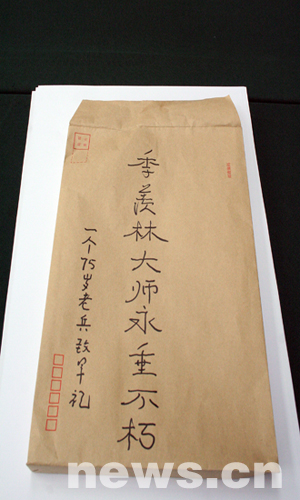 季羡林大师永垂不朽
一个75岁老兵敬军礼
news.cn